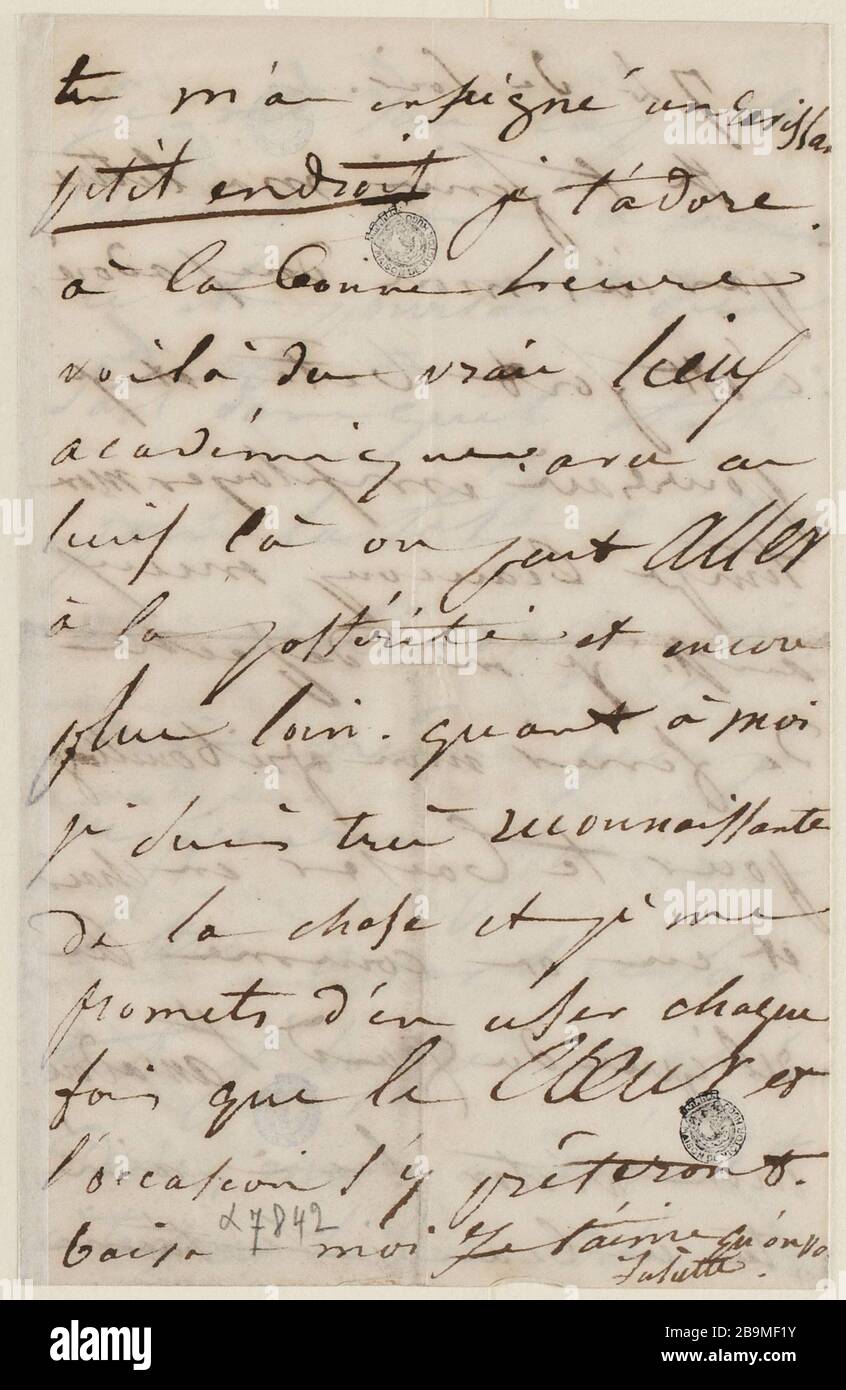 tu m'as enseigné un
petit endroit je t'adore.
à la bonne heure
voilà du vrai
académique. avec ce
là on peut aller
à la postérité et encore
plus loin. quant à moi
je suis très reconnaissante
de la chose et je me
promets d'en user chaque
fois que le cœur et
l'occasion s'y prêteront.
baise-moi Je t'aime
Juliette.
α 7842
alamy
Image ID: 2B9MF1Y
www.alamy.com